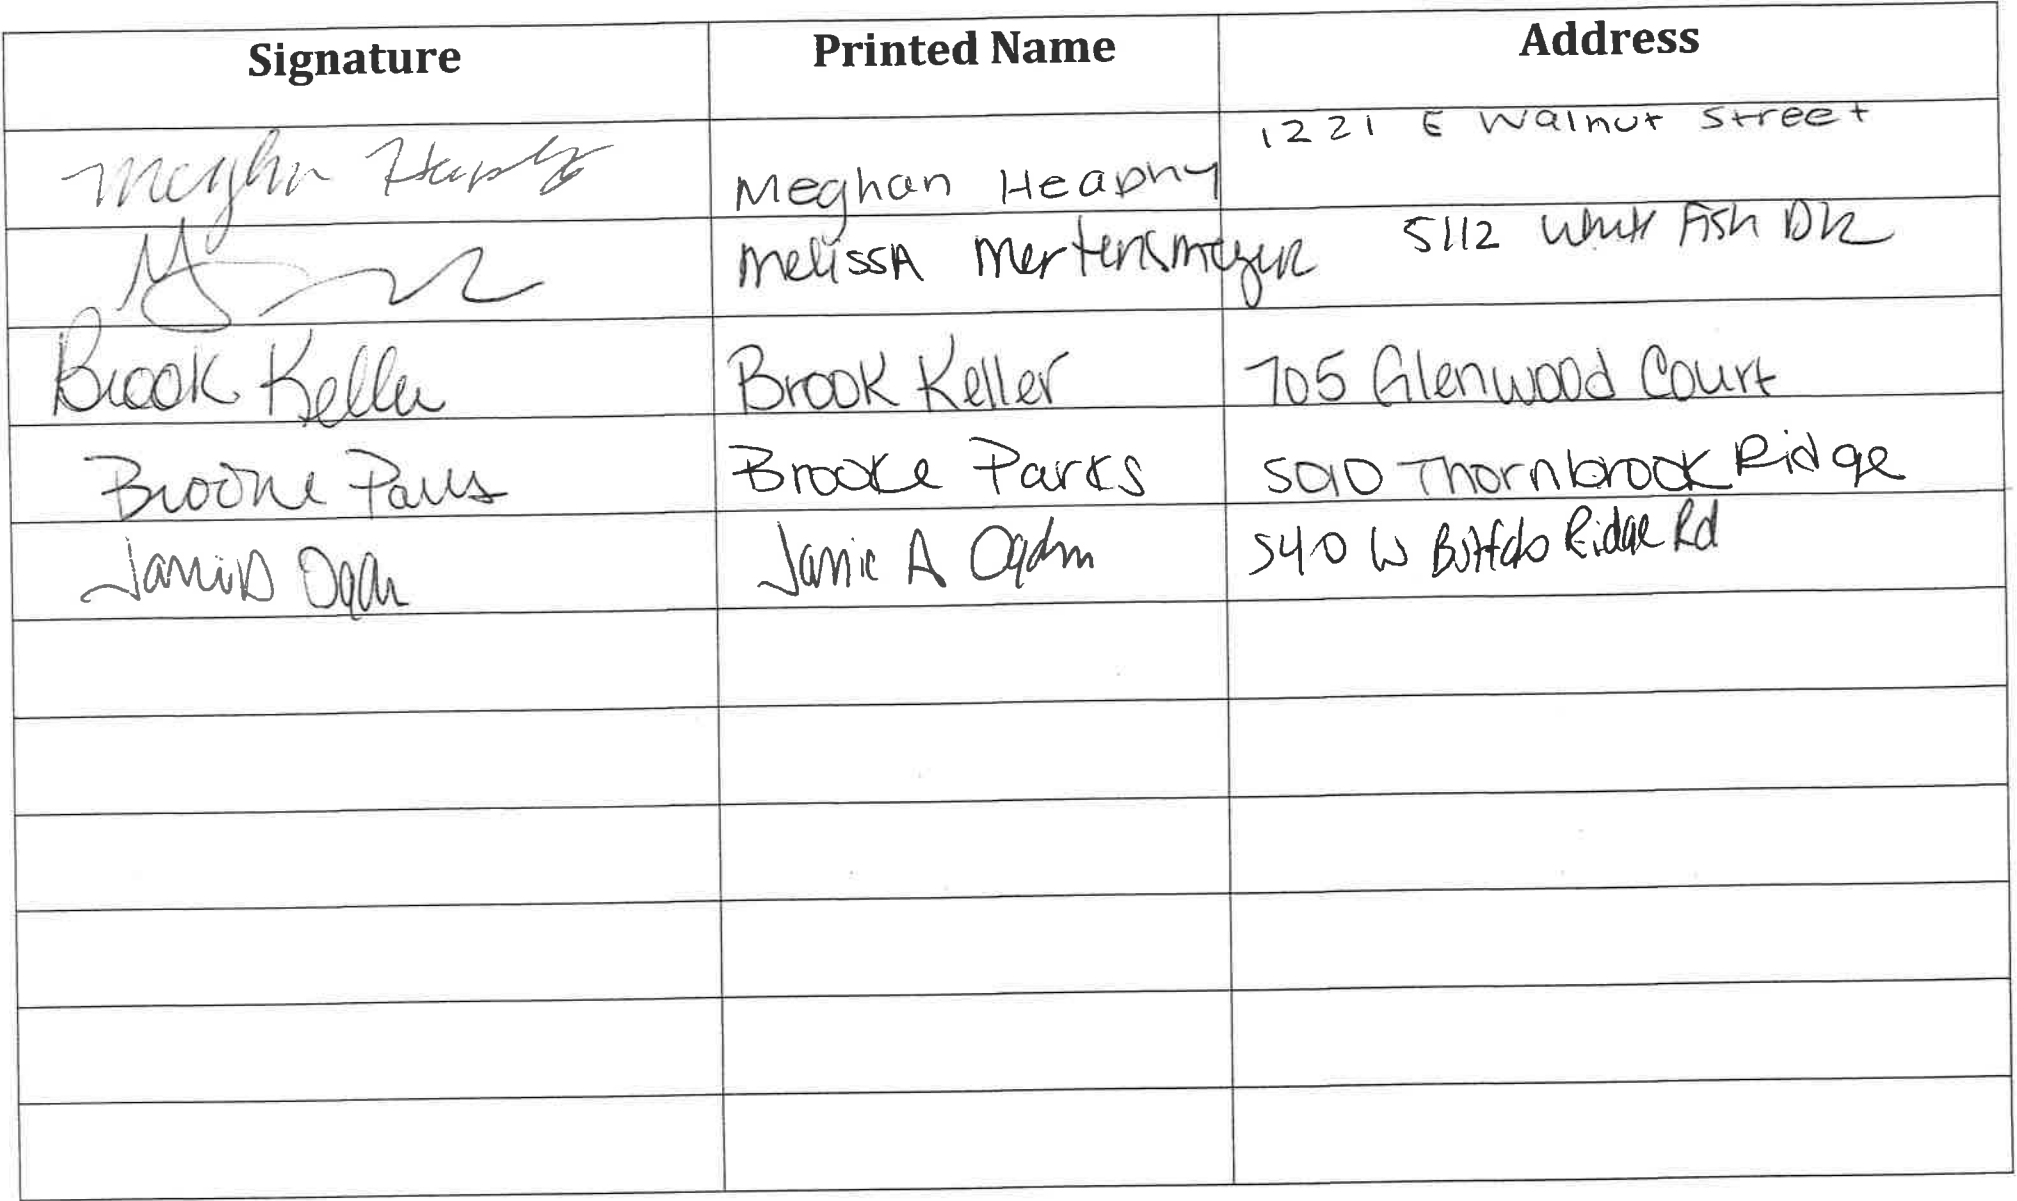 Signature Printed Name Address
Meghan Heaphy Meghan Heaphy 1221 E Walnut Street
Melissa Mertensmeyer 5112 White Fish DR
Brook Keller Brook Keller 705 Glenwood Court
Brooke Parks Brooke Parks Thornbrook Ridge
Jamie A Ogden Jamie A Ogden 540 W Buffalo Ridge Rd